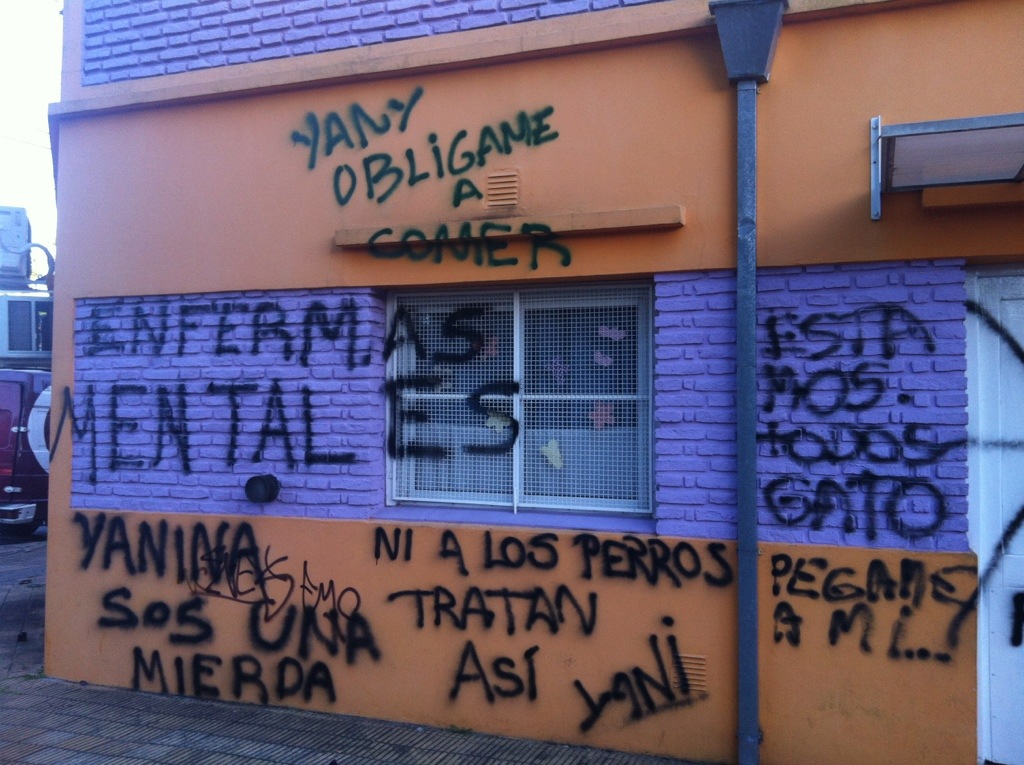 YANY
OBLIGAME
A
COMER
ENFERMAS
MENTALES
ESTA
MOS.
todos
GATO
YANINA
SOS UNA
MIERDA
EMO
NI A LOS PERROS
TRATAN
ASÍ
YANi
PEGAME
A Mi...